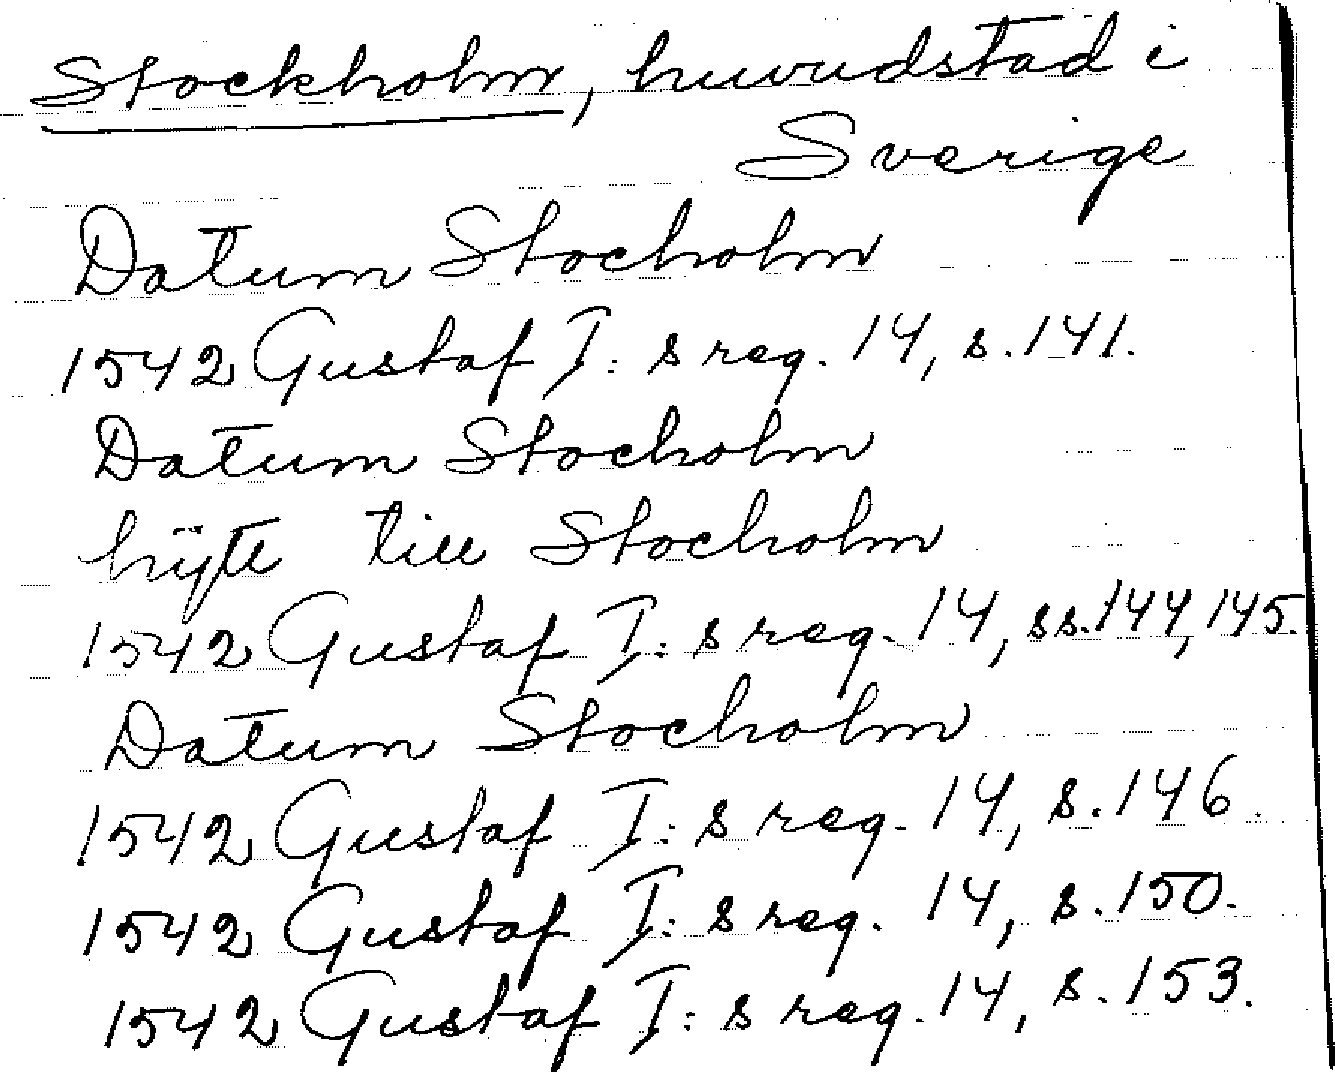 Stockholm, huvudstad i
Sverige
Datum Stocholm
1542 Gustaf I: s reg. 14, s. 141.
Datum Stocholm
hijtt till Stocholm
1542 Gustaf I: s reg. 14, ss. 144, 145.
Datum Stocholm
1542 Gustaf I: s reg. 14, s. 146.
1542 Gustaf I: s reg. 14, s. 150.
1542 Gustaf I: s reg. 14, s. 153.